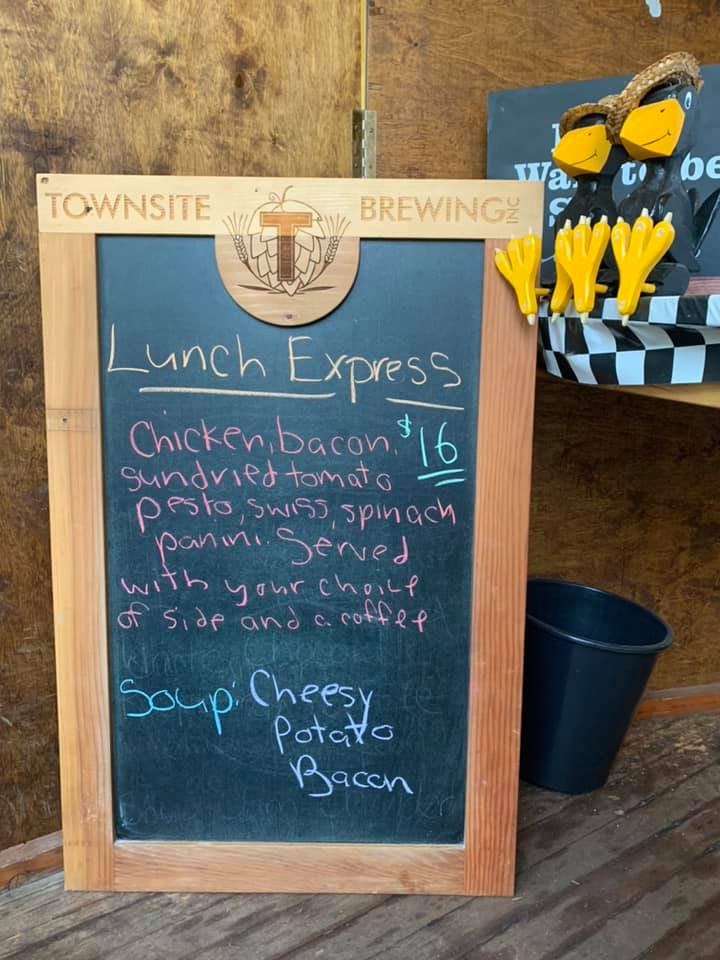 TOWNSITE BREWING INC
T
Lunch Express
Chicken, bacon, $16
sundried tomato
pesto, swiss, spinach
panini. Served
with your choice
of side and a coffee
Soup: Cheesy
Potato
Bacon
to be